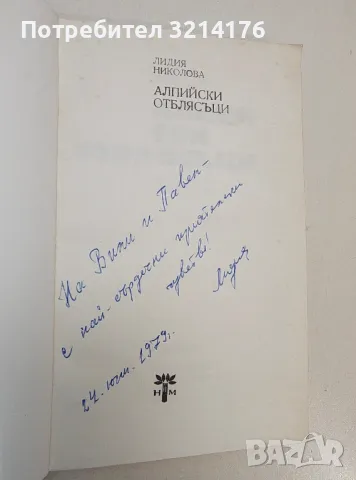 Потребител 4213254
ЛИДИЯ
НИКОЛОВА
АЛПИЙСКИ
ОТБЛЯСЪЦИ
На Вили и Павел -
с най-сърдечни приятелски
чувства!
Лидия
24. юни. 1979г.
НМ
BAZAR